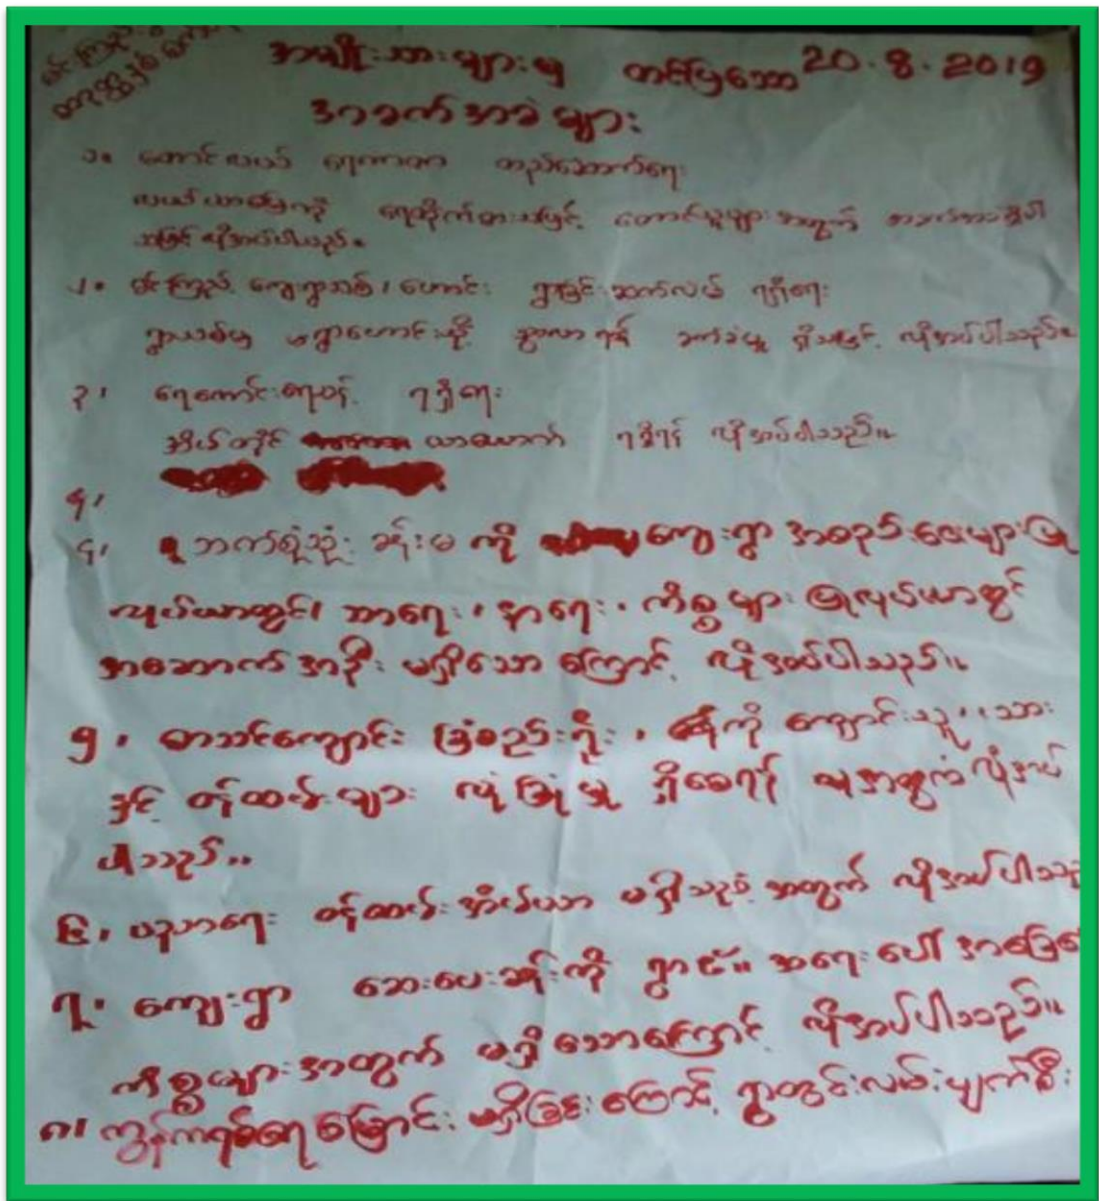 အမျိုးသားများမှ တင်ပြသော 20.8.2019
အခက်အခဲများ
၁။ တောင်ယယ် ရေကာတာ တည်ဆောက်ရေး
လယ်ယာမြေကို ရေတိုက်စားသဖြင့် တောင်သူများအတွက် အခက်အခဲရှိပါ
သဖြင့် လိုအပ်ပါသည်။
၂။ ကျေးရွာသစ်၊ ဟောင်း ရွာချင်းဆက်လမ်း ရရှိရေး
ရွာသစ်မှ ရွာဟောင်းသို့ သွားလာရန် ခက်ခဲမှု ရှိသဖြင့် လိုအပ်ပါသည်။
၃၊ ရေကောင်းရေသန့် ရရှိရေး
အိမ်တိုင် ယာရောက် ရရှိရန် လိုအပ်ပါသည်။
၄၊
၄၊ ဘက်စုံသုံး ခန်းမ ကို ကျေးရွာ အစည်းဝေးများပြု
လုပ်ရာတွင်၊ သာရေး၊ နာရေး၊ ကိစ္စများ ပြုလုပ်ရာတွင်
အဆောက်အဦး မရှိသော ကြောင့် လိုအပ်ပါသည်။
၅၊ စာသင်ကျောင်း ခြံစည်းရိုး၊ ကို ကျောင်းသူ၊ သား
နှင့် ဝန်ထမ်းများ လုံခြုံမှု ရှိစေရန် အတွက် လိုအပ်
ပါသည်။
၆၊ ပညာရေး ဝန်ထမ်းအိမ်ယာ မရှိသည့် အတွက် လိုအပ်ပါသည်
၇၊ ကျေးရွာ ဆေးပေးခန်းကို အရေးပေါ် အခြေ
ကိစ္စများအတွက် မရှိသောကြောင့် လိုအပ်ပါသည်။
၈၊ ကွန်ကရစ်ရေမြောင်း မရှိခြင်းကြောင့် ရွာတွင်းလမ်းပျက်စီး